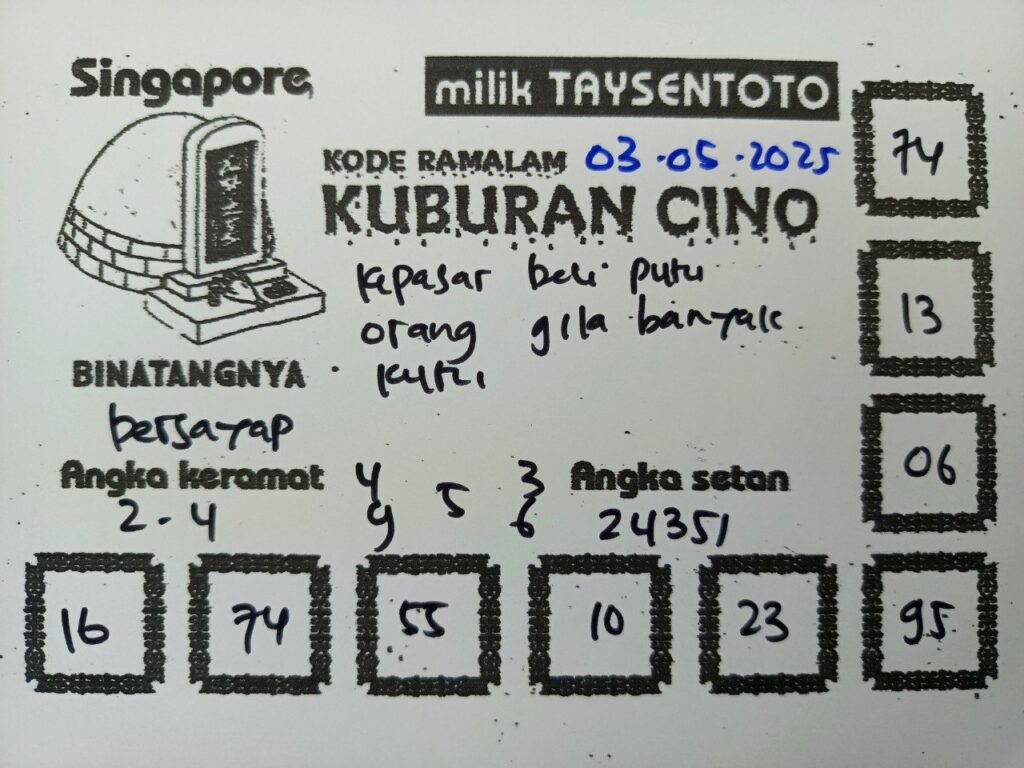 Singapore
milik TAYSENTOTO
KODE RAMALAM 03-05-2025
KUBURAN CINO
kepasar beli putu
orang gila banyak
kutu
BINATANGNYA
bersayap
Angka keramat
2-4
4 3
5
9 6
Angka setan
24351
74
13
06
16 74 55 10 23 95